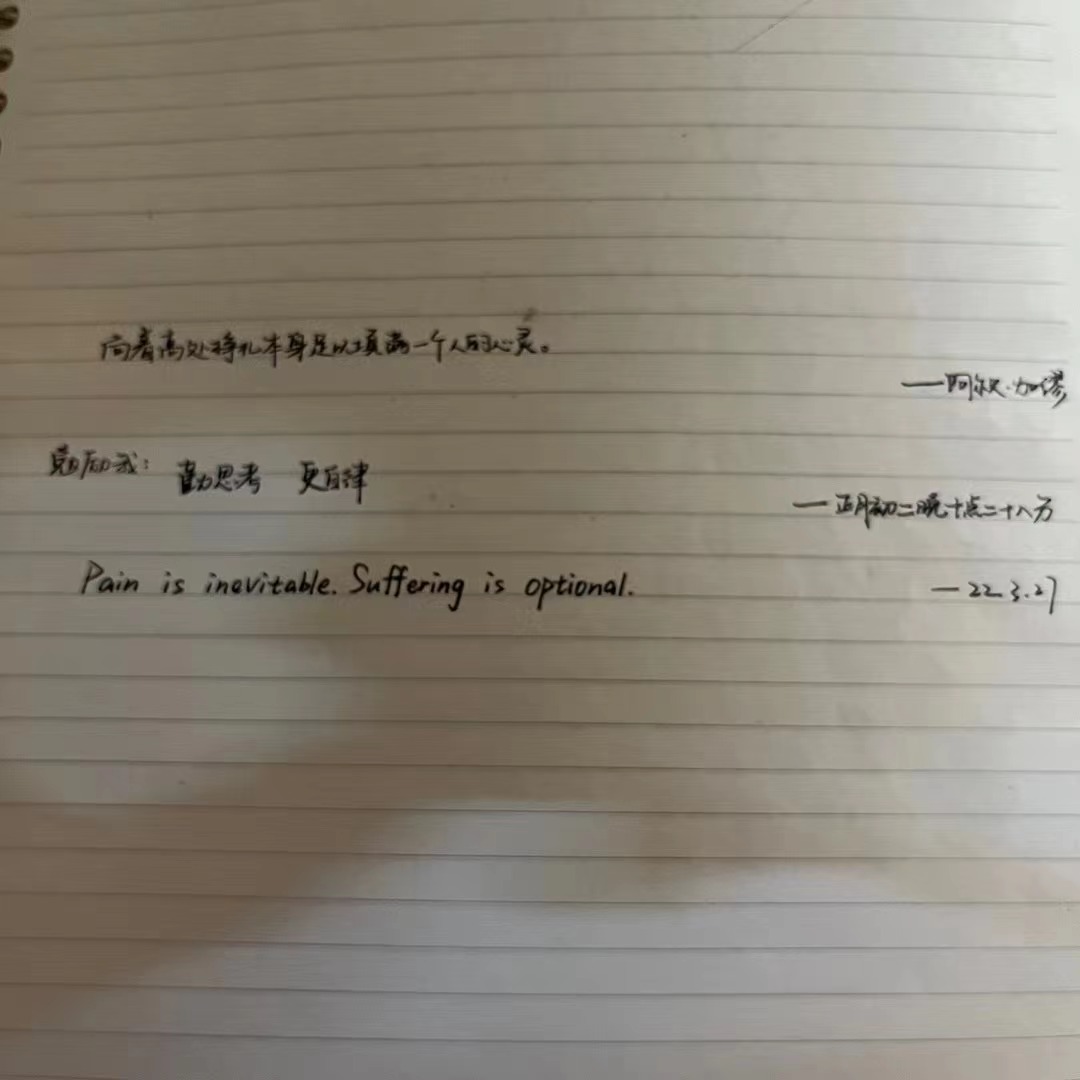 向着高处挣扎本身足以填满一个人的心灵。
——阿尔贝·加缪
勉励我：勤思考 更自律
—正月初二晚十点二十八分
Pain is inevitable. Suffering is optional.
—22.3.27